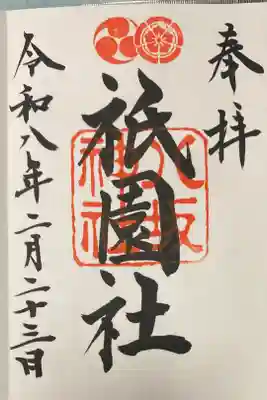 奉拝
八坂神社
祇園社
令和八年二月二十三日